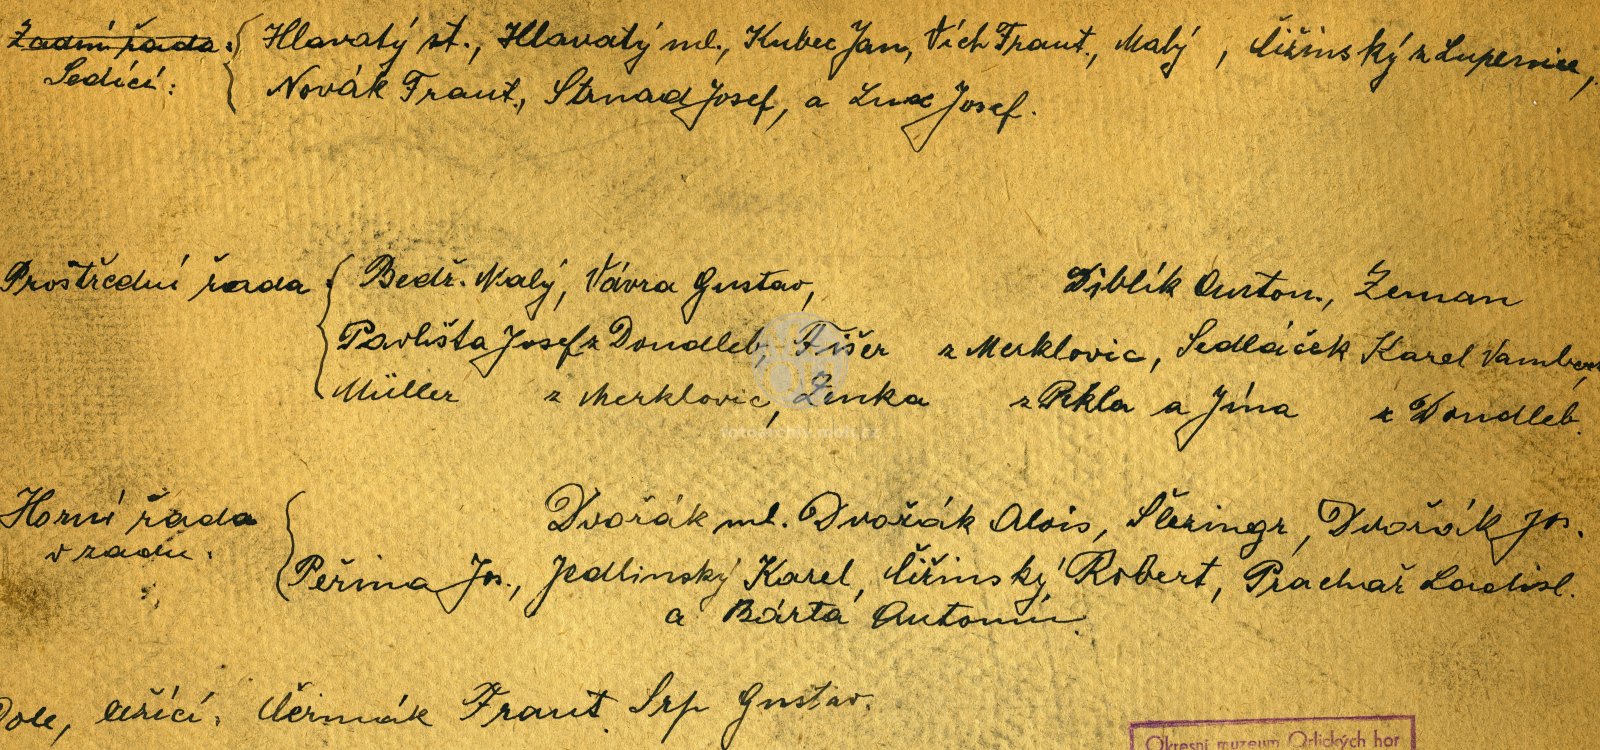 Zadní řada: Hlavatý st., Hlavatý ml., Kubec Jan, Vích Frant., Malý , Čižinský z Lupenice,
Sedící: Novák Frant., Strnad Josef, a Lux Josef.
Prostřední řada: Bedř. Malý, Vávra Gustav, Diblík Anton., Zeman
Pavlišta Josef z Doudleb, Fišer z Merklovic, Sedláček Karel Vamberk,
Müller z Merklovic, Zenka z Pekla a Jína z Doudleb.
Horní řada Dvořák ml. Dvořák Alois, Šlezingr, Dvořák Jos.
v zadu: Peřina Jos., Jedlinský Karel, Čižinský Robert, Prachař Ladisl.
a Bárta Antonín.
Dole, ležící: Čermák Frant. Srp Gustav.
Okresní muzeum Orlických hor